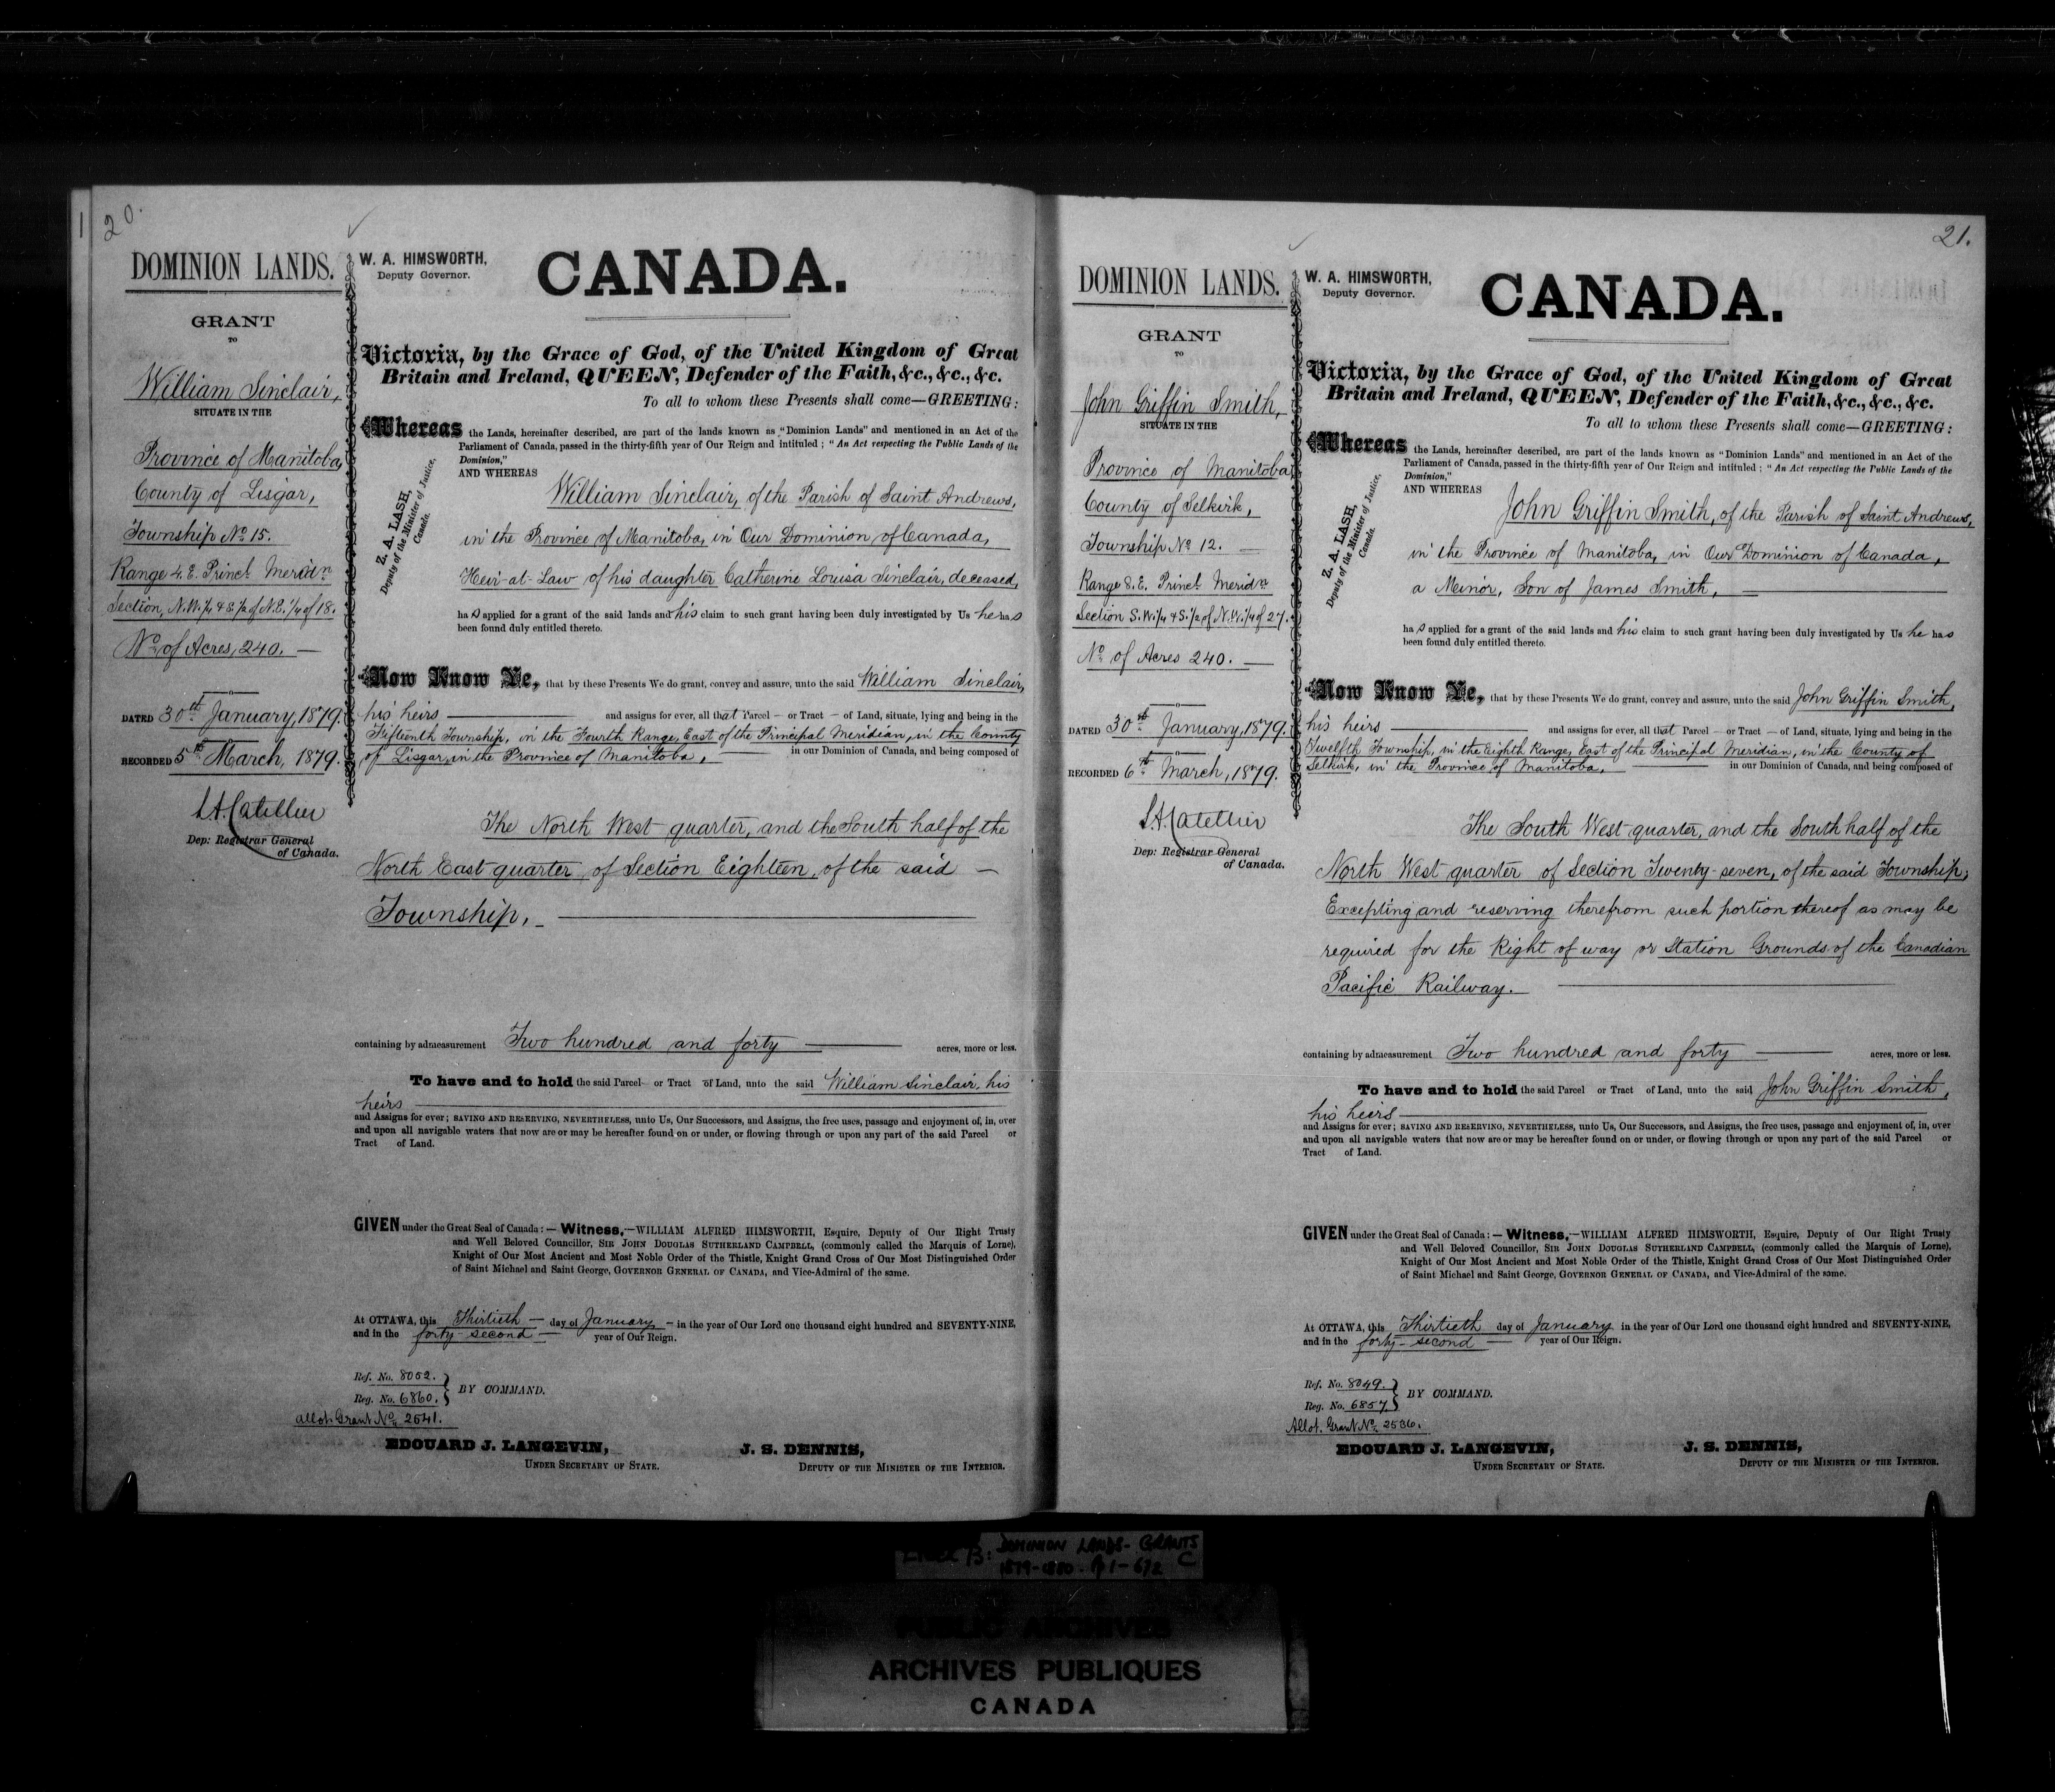 20.
DOMINION LANDS.
GRANT
TO
William Sinclair,
SITUATE IN THE
Province of Manitoba,
County of Lisgar,
Township No. 15.
Range 4. E. Princl. Meridn.
Section, N.W. 1/4 & S. 1/2 of N.E. 1/4 of 18.
No. of Acres, 240. —
DATED 30th January, 1879.
RECORDED 5th March, 1879.
L.A. Catellier
Dep: Registrar General
of Canada.
W. A. HIMSWORTH,
Deputy Governor.
CANADA.
Victoria, by the Grace of God, of the United Kingdom of Great
Britain and Ireland, QUEEN, Defender of the Faith, &c., &c., &c.
To all to whom these Presents shall come—GREETING:
Whereas the Lands, hereinafter described, are part of the lands known as "Dominion Lands" and mentioned in an Act of the
Parliament of Canada, passed in the thirty-fifth year of Our Reign and intituled; "An Act respecting the Public Lands of the
Dominion,"
Z. A. LASH,
Deputy of the Minister of Justice,
Canada.
AND WHEREAS
William Sinclair, of the Parish of Saint Andrews,
in the Province of Manitoba, in Our Dominion of Canada,
Heir-at-Law of his daughter Catherine Louisa Sinclair, deceased,
has applied for a grant of the said lands and his claim to such grant having been duly investigated by Us he has
been found duly entitled thereto.
Now Know Ye, that by these Presents We do grant, convey and assure, unto the said William Sinclair,
his heirs — and assigns for ever, all that Parcel — or Tract — of Land, situate, lying and being in the
Fifteenth Township, in the Fourth Range, East of the Principal Meridian, in the County
of Lisgar, in the Province of Manitoba, in our Dominion of Canada, and being composed of
The North West quarter, and the South half of the
North East quarter of Section Eighteen, of the said —
Township, —
containing by admeasurement Two hundred and forty — acres, more or less.
To have and to hold the said Parcel or Tract of Land, unto the said William Sinclair, his
heirs
and Assigns for ever; SAVING AND RESERVING, NEVERTHELESS, unto Us, Our Successors, and Assigns, the free uses, passage and enjoyment of, in, over
and upon all navigable waters that now are or may be hereafter found on or under, or flowing through or upon any part of the said Parcel or
Tract of Land.
GIVEN under the Great Seal of Canada:— Witness,—WILLIAM ALFRED HIMSWORTH, Esquire, Deputy of Our Right Trusty
and Well Beloved Councillor, SIR JOHN DOUGLAS SUTHERLAND CAMPBELL, (commonly called the Marquis of Lorne),
Knight of Our Most Ancient and Most Noble Order of the Thistle, Knight Grand Cross of Our Most Distinguished Order
of Saint Michael and Saint George, GOVERNOR GENERAL OF CANADA, and Vice-Admiral of the same.
At OTTAWA, this Thirtieth — day of January — in the year of Our Lord one thousand eight hundred and SEVENTY-NINE,
and in the forty-second — year of Our Reign.
Ref. No. 8052.
Reg. No. 6860.
BY COMMAND.
Allot. Grant No. 2541.
EDOUARD J. LANGEVIN,
UNDER SECRETARY OF STATE.
J. S. DENNIS,
DEPUTY OF THE MINISTER OF THE INTERIOR.
21.
DOMINION LANDS.
GRANT
TO
John Griffin Smith,
SITUATE IN THE
Province of Manitoba
County of Selkirk,
Township No. 12. —
Range 8. E. Princl. Meridn.
Section S.W. 1/4 & S. 1/2 of N.W. 1/4 of 27.
No. of Acres 240. —
DATED 30th January, 1879.
RECORDED 6th March, 1879.
L.A. Catellier
Dep: Registrar General
of Canada.
W. A. HIMSWORTH,
Deputy Governor.
CANADA.
Victoria, by the Grace of God, of the United Kingdom of Great
Britain and Ireland, QUEEN, Defender of the Faith, &c., &c., &c.
To all to whom these Presents shall come—GREETING:
Whereas the Lands, hereinafter described, are part of the lands known as "Dominion Lands" and mentioned in an Act of the
Parliament of Canada, passed in the thirty-fifth year of Our Reign and intituled; "An Act respecting the Public Lands of the
Dominion,"
Z. A. LASH,
Deputy of the Minister of Justice,
Canada.
AND WHEREAS
John Griffin Smith, of the Parish of Saint Andrews,
in the Province of Manitoba, in Our Dominion of Canada,
a Minor, Son of James Smith, —
has applied for a grant of the said lands and his claim to such grant having been duly investigated by Us he has
been found duly entitled thereto.
Now Know Ye, that by these Presents We do grant, convey and assure, unto the said John Griffin Smith,
his heirs — and assigns for ever, all that Parcel — or Tract — of Land, situate, lying and being in the
Twelfth Township, in the Eighth Range, East of the Principal Meridian, in the County of
Selkirk, in the Province of Manitoba, in our Dominion of Canada, and being composed of
The South West quarter, and the South half of the
North West quarter of Section Twenty-seven, of the said Township;
Excepting and reserving therefrom such portion thereof as may be
required for the Right of way or Station Grounds of the Canadian
Pacific Railway. —
containing by admeasurement Two hundred and forty — acres, more or less.
To have and to hold the said Parcel or Tract of Land, unto the said John Griffin Smith,
his heirs
and Assigns for ever; SAVING AND RESERVING, NEVERTHELESS, unto Us, Our Successors, and Assigns, the free uses, passage and enjoyment of, in, over
and upon all navigable waters that now are or may be hereafter found on or under, or flowing through or upon any part of the said Parcel or
Tract of Land.
GIVEN under the Great Seal of Canada:— Witness,—WILLIAM ALFRED HIMSWORTH, Esquire, Deputy of Our Right Trusty
and Well Beloved Councillor, SIR JOHN DOUGLAS SUTHERLAND CAMPBELL, (commonly called the Marquis of Lorne),
Knight of Our Most Ancient and Most Noble Order of the Thistle, Knight Grand Cross of Our Most Distinguished Order
of Saint Michael and Saint George, GOVERNOR GENERAL OF CANADA, and Vice-Admiral of the same.
At OTTAWA, this Thirtieth day of January in the year of Our Lord one thousand eight hundred and SEVENTY-NINE,
and in the forty-second — year of Our Reign.
Ref. No. 8049.
Reg. No. 6857.
BY COMMAND.
Allot. Grant No. 2536.
EDOUARD J. LANGEVIN,
UNDER SECRETARY OF STATE.
J. S. DENNIS,
DEPUTY OF THE MINISTER OF THE INTERIOR.
DOMINION LANDS - GRANTS
1879-1880 - p 1-672 C
PUBLIC ARCHIVES
ARCHIVES PUBLIQUES
CANADA